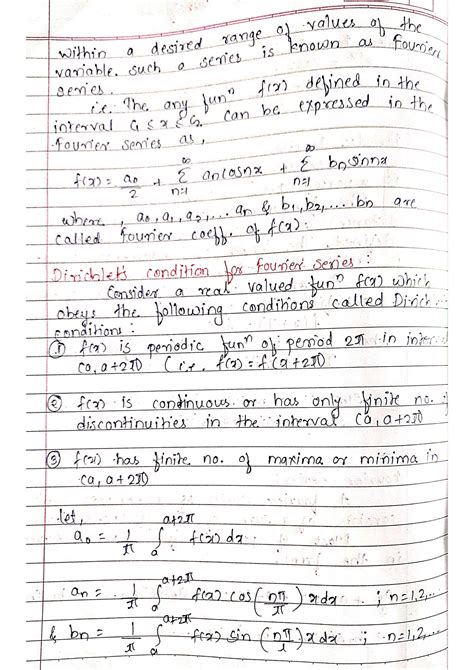 within a desired range of values of the
variable. such a series is known as fourier
series.
i.e. The any funⁿ f(x) defined in the
interval C₁ ≤ x ≤ C₂ can be expressed in the
fourier series as,
f(x) = a₀/2 + ∞Σn=1 an cosnx + ∞Σn=1 bn sinnx
where, a₀, a₁, a₂,... an & b₁, b₂,... bn are
called fourier coeff. of f(x).
Dirichlet's condition for fourier series :
Consider a real valued funⁿ f(x) which
obeys the following conditions called Dirich.
conditions :
① f(x) is periodic funⁿ of period 2π in inter
(a, a+2π) (i.e, f(x) = f(a+2π)
② f(x) is continuous or has only finite no. of
discontinuities in the interval (a, a+2π)
③ f(x) has finite no. of maxima or minima in
(a, a+2π)
let,
a₀ = 1/π ∫ₐ^(a+2π) f(x) dx.
an = 1/π ∫ₐ^(a+2π) f(x) cos(nπ/π) x dx ; n=1,2,..
& bn = 1/π ∫ₐ^(a+2π) f(x) sin(nπ/l) x dx ; n=1,2,..